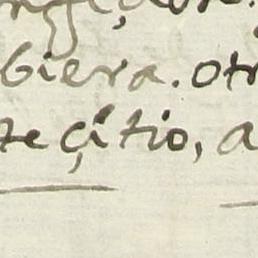 biera. otr
te çítio, a